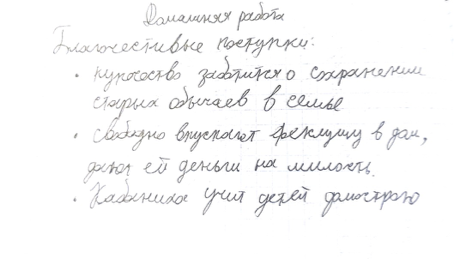 Домашняя работа
Благочестивые поступки:
• купечество заботится о сохранении
старых обычаев в семье
• свободно впускают Феклушу в дом,
дают ей деньги на милость.
• Кабаниха учит детей домострою